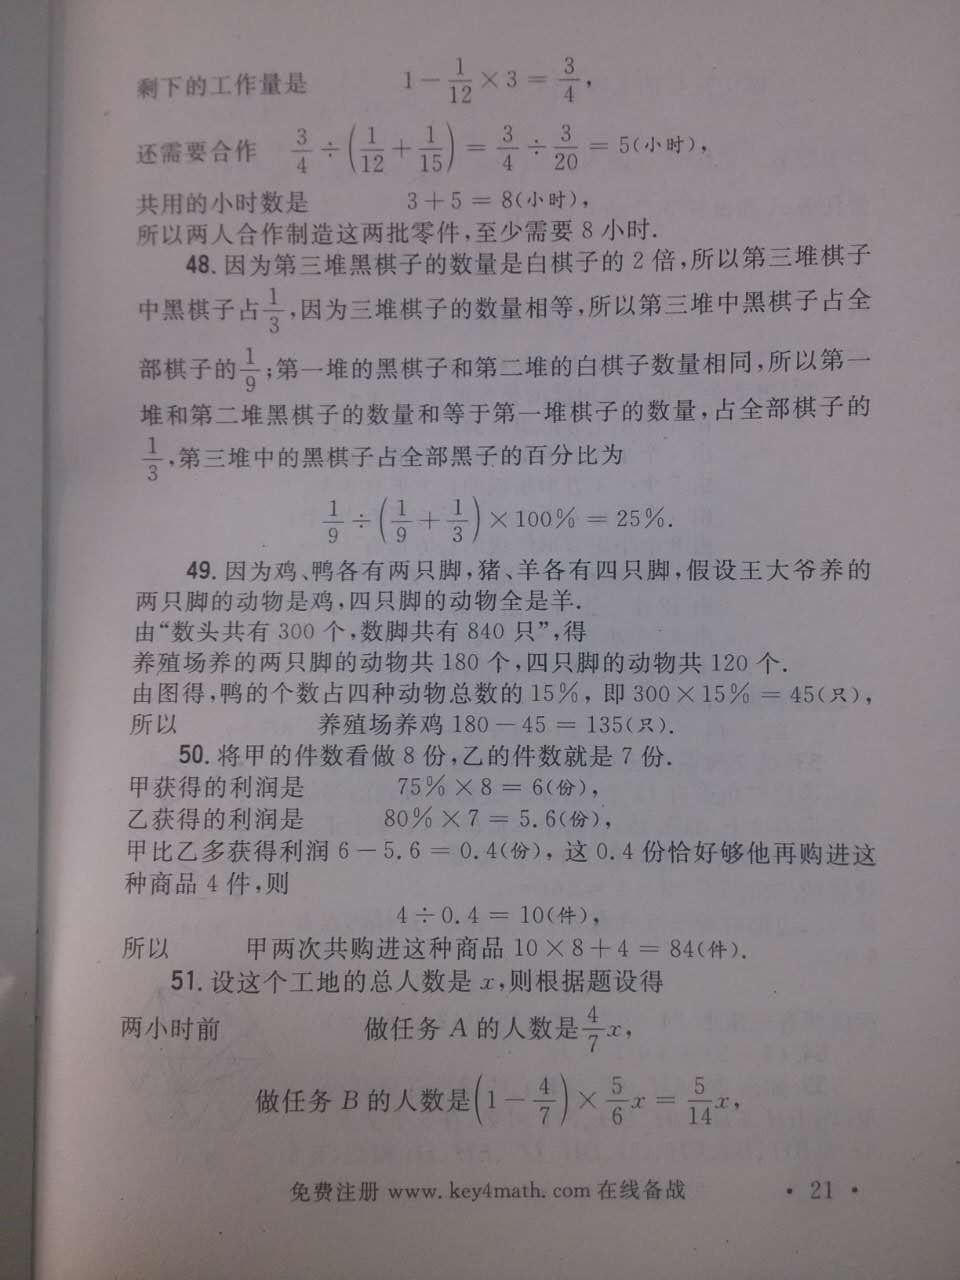 剩下的工作量是 1－1/12×3＝3/4，
还需要合作 3/4÷(1/12＋1/15)＝3/4÷3/20＝5(小时)，
共用的小时数是 3＋5＝8(小时)，
所以两人合作制造这两批零件，至少需要 8 小时.
48. 因为第三堆黑棋子的数量是白棋子的 2 倍，所以第三堆棋子
中黑棋子占1/3，因为三堆棋子的数量相等，所以第三堆中黑棋子占全
部棋子的1/9；第一堆的黑棋子和第二堆的白棋子数量相同，所以第一
堆和第二堆黑棋子的数量和等于第一堆棋子的数量，占全部棋子的
1/3，第三堆中的黑棋子占全部黑子的百分比为
1/9÷(1/9＋1/3)×100%＝25%.
49. 因为鸡、鸭各有两只脚，猪、羊各有四只脚，假设王大爷养的
两只脚的动物是鸡，四只脚的动物全是羊.
由“数头共有 300 个，数脚共有 840 只”，得
养殖场养的两只脚的动物共 180 个，四只脚的动物共 120 个.
由图得，鸭的个数占四种动物总数的 15%，即 300×15%＝45(只)，
所以 养殖场养鸡 180－45＝135(只).
50. 将甲的件数看做 8 份，乙的件数就是 7 份.
甲获得的利润是 75%×8＝6(份)，
乙获得的利润是 80%×7＝5.6(份)，
甲比乙多获得利润 6－5.6＝0.4(份)，这 0.4 份恰好够他再购进这
种商品 4 件，则
4÷0.4＝10(件)，
所以 甲两次共购进这种商品 10×8＋4＝84(件).
51. 设这个工地的总人数是 x，则根据题设得
两小时前 做任务 A 的人数是4/7x，
做任务 B 的人数是(1－4/7)×5/6x＝5/14x，
免费注册 www.key4math.com 在线备战 • 21 •